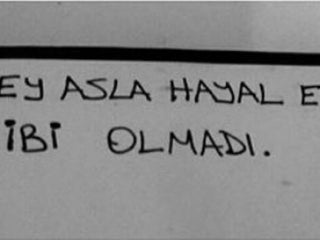 EY ASLA HAYAL E
İBİ OLMADI.